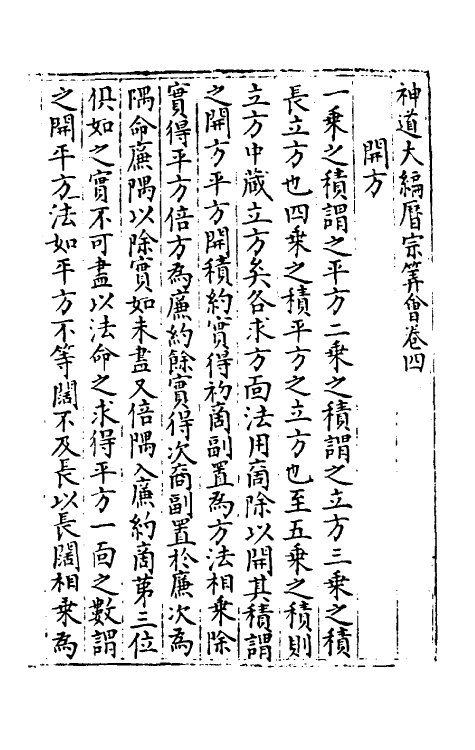 神道大編曆宗筭會卷四
開方
一乗之積謂之平方二乗之積謂之立方三乗之積
長立方也四乗之積平方之立方也至五乗之積則
立方中藏立方矣各求方面法用商除以開其積謂
之開方平方開積約實得初商副置為方法相乗除
實得平方倍方為廉約餘實得次商副置於廉次為
隅命廉隅以除實如未盡又倍隅入廉約商苐三位
俱如之實不可盡以法命之求得平方一面之數謂
之開平方法如平方不等闊不及長以長闊相乗為